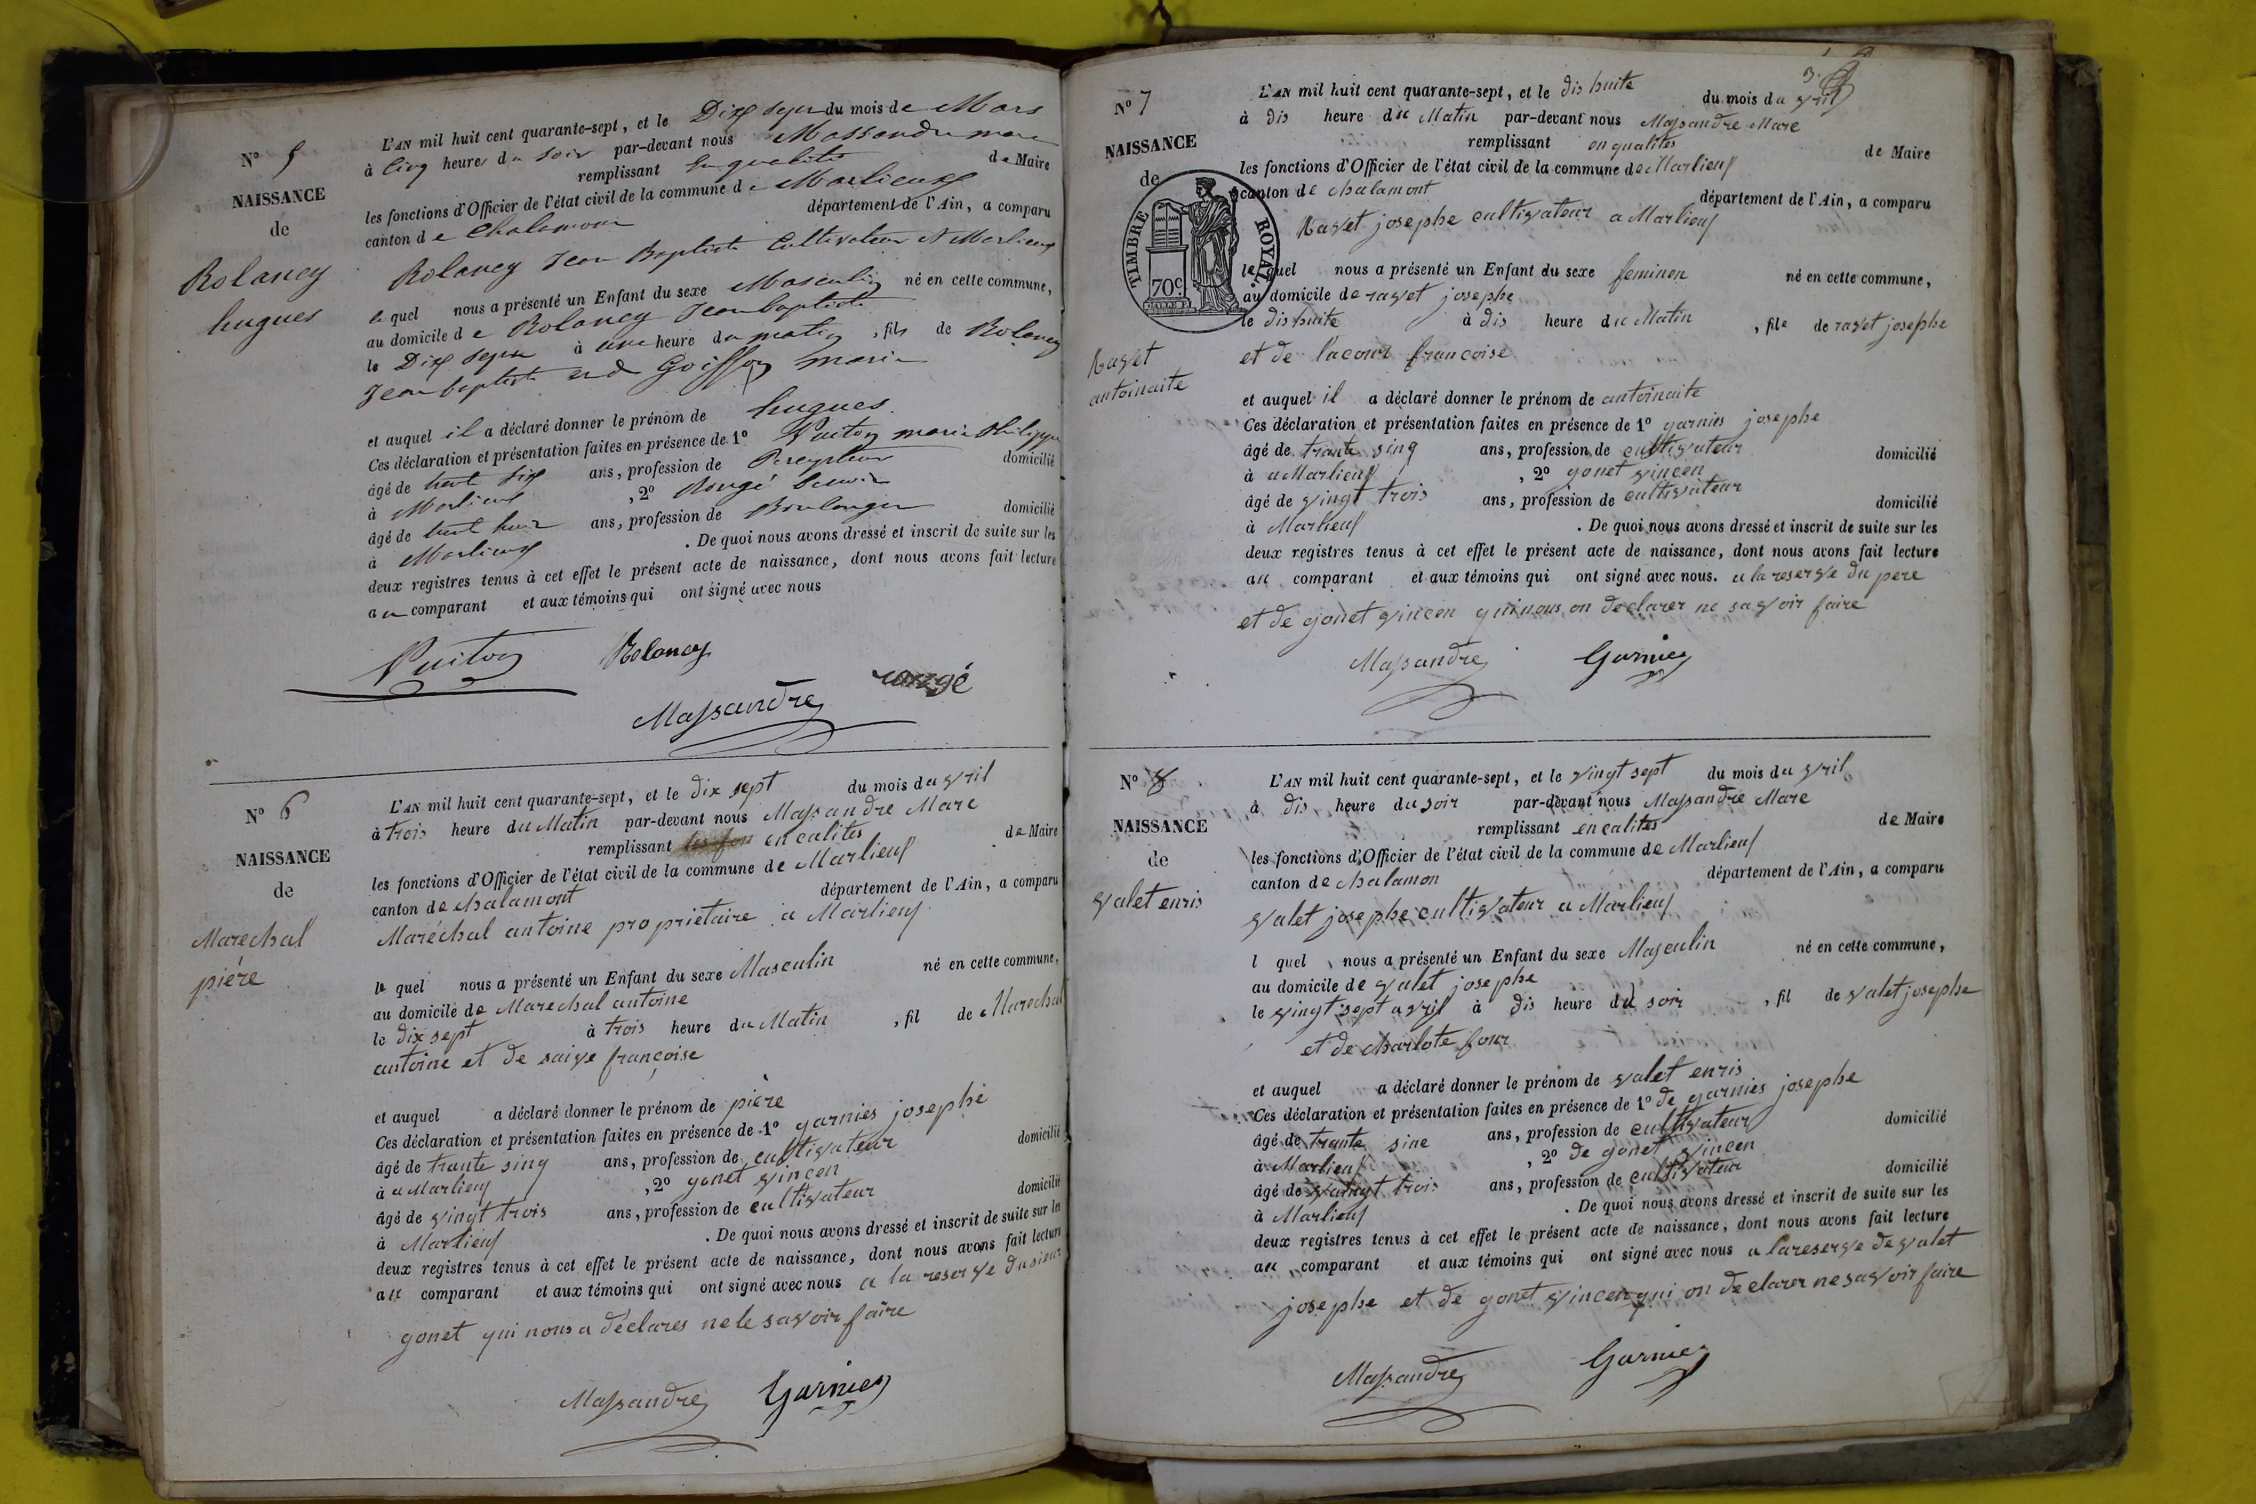 N° 5
NAISSANCE
de
Rolancy
hugues
L'AN mil huit cent quarante-sept, et le Dix sept du mois de Mars
à Cinq heures du soir par-devant nous Massandre maire
remplissant en qualité de Maire
les fonctions d'Officier de l'état civil de la commune de Marlieux
canton de Chalamont département de l'Ain, a comparu
Rolancy Jean Baptiste Cultivateur A Marlieux
le quel nous a présenté un Enfant du sexe Masculin né en cette commune,
au domicile de Rolancy Jean baptiste
le Dix sept à une heure du matin, fils de Rolancy
Jean baptiste et de Goiffon marie
et auquel il a déclaré donner le prénom de hugues
Ces déclaration et présentation faites en présence de 1° Puiton marie philippe
âgé de trent six ans, profession de Percepteur domicilié
à Marlieux, 2° Rongé benoit
âgé de trent huit ans, profession de Boulanger domicilié
à Marlieux. De quoi nous avons dressé et inscrit de suite sur les
deux registres tenus à cet effet le présent acte de naissance, dont nous avons fait lecture
au comparant et aux témoins qui ont signé avec nous
Puiton Rolancy
rongé
Massandre
N° 6
NAISSANCE
de
Marechal
piére
L'AN mil huit cent quarante-sept, et le dix sept du mois du avril
à trois heure du Matin par-devant nous Massandre Mare
remplissant en calites de Maire
les fonctions d'Officier de l'état civil de la commune de Marlieux
canton de chalamont département de l'Ain, a comparu
Maréchal antoine propriétaire a Marlieux
le quel nous a présenté un Enfant du sexe Masculin né en cette commune,
au domicile de Marechal antoine
le dix sept à trois heure du Matin, fil de Marechal
antoine et de saive françoise
et auquel a déclaré donner le prénom de piére
Ces déclaration et présentation faites en présence de 1° garnies josephe
âgé de trante sinq ans, profession de cultivateur domicilié
à a Marlieux, 2° gonet vincen
âgé de vingt trois ans, profession de cultivateur domicilié
à Marlieux. De quoi nous avons dressé et inscrit de suite sur les
deux registres tenus à cet effet le présent acte de naissance, dont nous avons fait lecture
au comparant et aux témoins qui ont signé avec nous a la reserve du sieur
gonet qui nous a déclares ne le savoir faire
Massandre Garnier
N° 7
NAISSANCE
de
TIMBRE ROYAL
70 c.
Ravet
antoinaite
L'AN mil huit cent quarante-sept, et le dis huite du mois du avril
à dis heure du Matin par-devant nous Massandre Mare
remplissant en qualites de Maire
les fonctions d'Officier de l'état civil de la commune de Marlieux
canton de chalamont département de l'Ain, a comparu
Ravet josephe cultivateur a Marlieux
le quel nous a présenté un Enfant du sexe feminen né en cette commune,
au domicile de ravet josephe
le dis huite à dis heure du Matin, file de ravet josephe
et de lacour francoise
et auquel il a déclaré donner le prénom de antoinaite
Ces déclaration et présentation faites en présence de 1° garnies josephe
âgé de trante sinq ans, profession de cultivateur domicilié
à a Marlieux, 2° gonet vincen
âgé de vingt trois ans, profession de cultivateur domicilié
à Marlieux. De quoi nous avons dressé et inscrit de suite sur les
deux registres tenus à cet effet le présent acte de naissance, dont nous avons fait lecture
au comparant et aux témoins qui ont signé avec nous. a la reserve du pere
et de gonet vincen qui nous on declarer ne savoir faire
Massandre Garnier
N° 8
NAISSANCE
de
valet enris
L'AN mil huit cent quarante-sept, et le vingt sept du mois du avril
à dis heure du soir par-devant nous Massandre Mare
remplissant en calites de Maire
les fonctions d'Officier de l'état civil de la commune de Marlieux
canton de chalamon département de l'Ain, a comparu
valet josephe cultivateur a Marlieux
l quel nous a présenté un Enfant du sexe Masculin né en cette commune,
au domicile de valet josephe
le vingt sept avril à dis heure du soir, fil de valet josephe
et de charlote four
et auquel a déclaré donner le prénom de valet enris
Ces déclaration et présentation faites en présence de 1° de garnies josephe
âgé de trante sinc ans, profession de cultivateur domicilié
à Marlieux, 2° de gonet vincen
âgé de vaingt trois ans, profession de cultivateur domicilié
à Marlieux. De quoi nous avons dressé et inscrit de suite sur les
deux registres tenus à cet effet le présent acte de naissance, dont nous avons fait lecture
au comparant et aux témoins qui ont signé avec nous a la reserve de valet
josephe et de gonet vincen qui on declarer ne savoir faire
Massandre Garnier